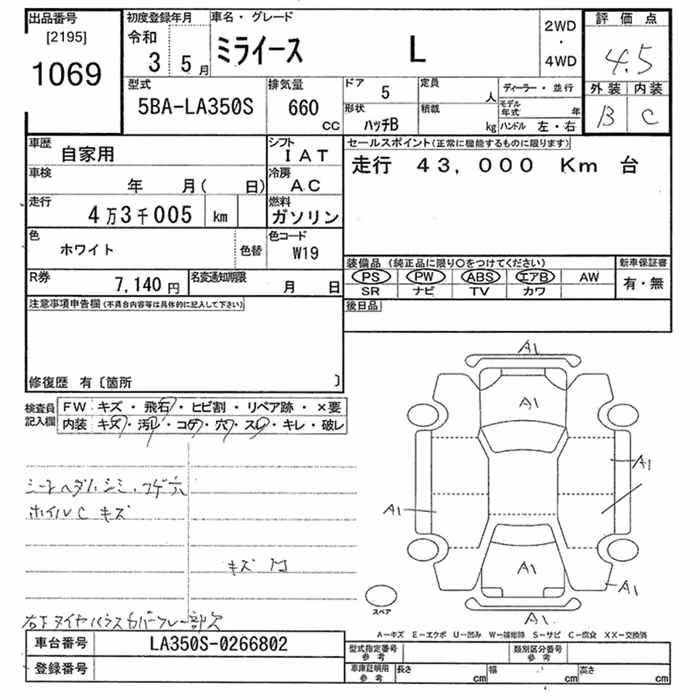 出品番号
[2195]
1069
初度登録年月
令和
3 5 月
車名・グレード
ミライース L
2WD
・
4WD
評価点
4.5
外装 内装
B C
型式
5BA-LA350S
排気量
660
cc
ドア
5
定員
人
ディーラー・並行
モデル年式 年
形状
ハッチB
積載
kg
ハンドル 左・右
車歴
自家用
シフト
IAT
車検
年 月( 日)
冷房
AC
走行
4万3千005 km
燃料
ガソリン
色
ホワイト
色替
色コード
W19
R券
7,140 円
名変通知期限
月 日
セールスポイント(正常に機能するものに限ります)
走行 43,000 Km 台
装備品 (純正品に限り○をつけてください)
PS PW ABS エアB AW
SR ナビ TV カワ
新車保証書
有・無
後日品
注意事項申告欄(不具合内容等は具体的に記入して下さい)
修復歴 有〔箇所 〕
検査員
記入欄
FW キズ・飛石・ヒビ割・リペア跡・×要
内装 キズ・汚レ・コゲ・穴・スレ・キレ・破レ
シートヘタリ、シミ、コゲ穴
ホイルC キズ
キズ 凹
A1
A1
A1
A1
A1
A1
A1
スペア
A-キズ E-エクボ U-凹み W-補修跡 S-サビ C-腐食 XX-交換済
車台番号
LA350S-0266802
登録番号
型式指定番号
参考
類別区分番号
参考
車庫証明用
参考
長さ cm 幅 cm 高さ cm